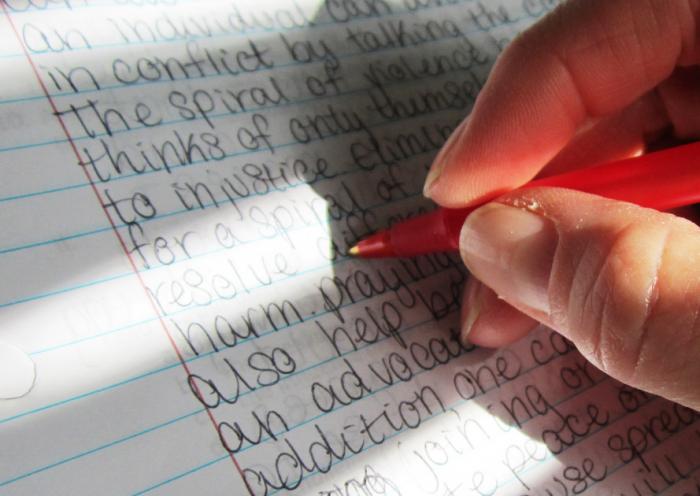 an individual can
in conflict by talking the
the spiral of violence
thinks of only themsel
to injustice elimin
for a spiral of
resolve
harm. praying
also help be
an advocat
addition one ca
joining
peace
spre
will